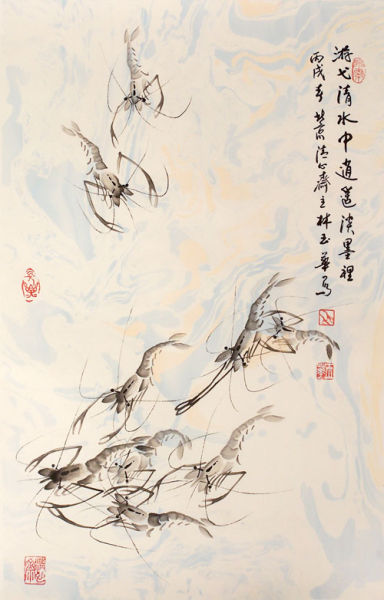 游弋清水中逍遥淡墨裡
丙戌 北京 齋主林玉華写